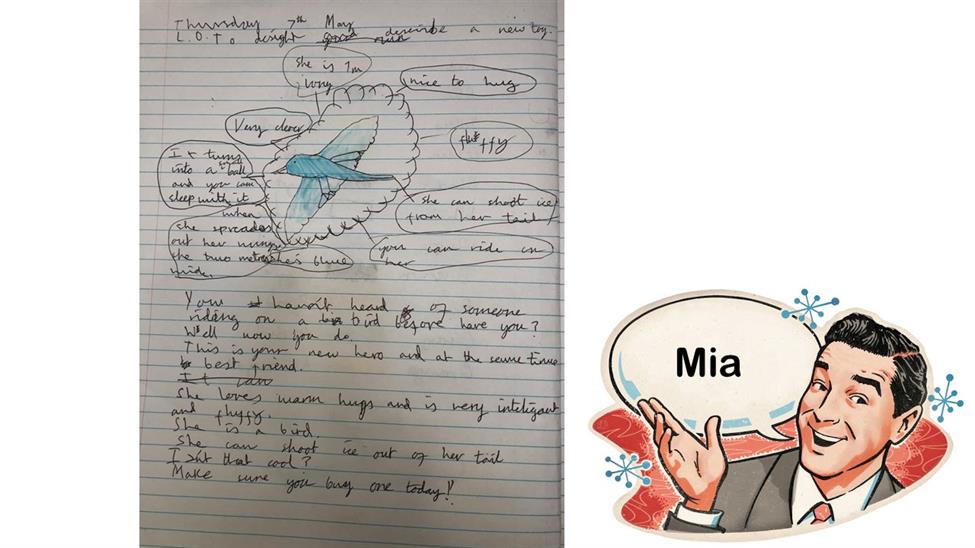 Thursday 7th May
L.O. To desight describe a new toy.
she is 1m
long
nice to hug
Very clever
fluffy
It turns
into a small ball
and you can
sleep with it
she can shoot ice
from her tail
when
she spreades
out her wings
she two metres
wide.
she's blue
you can ride on
her
You havn't heard of someone
riding on a bird before have you?
Well now you do.
This is your new hero and at the same time
best friend.
It can
She loves warm hugs and is very inteligant
and fluffy.
She is a bird.
She can shoot ice out of her tail
Isnt that cool?
Make sure you buy one today!!
Mia